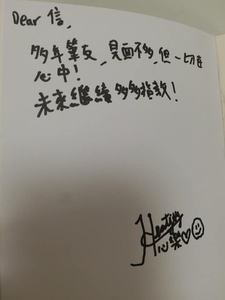 Dear 信,
多年筆友,見面不多但一切在
心中!
未來繼續多多指教!
心樂♡☺